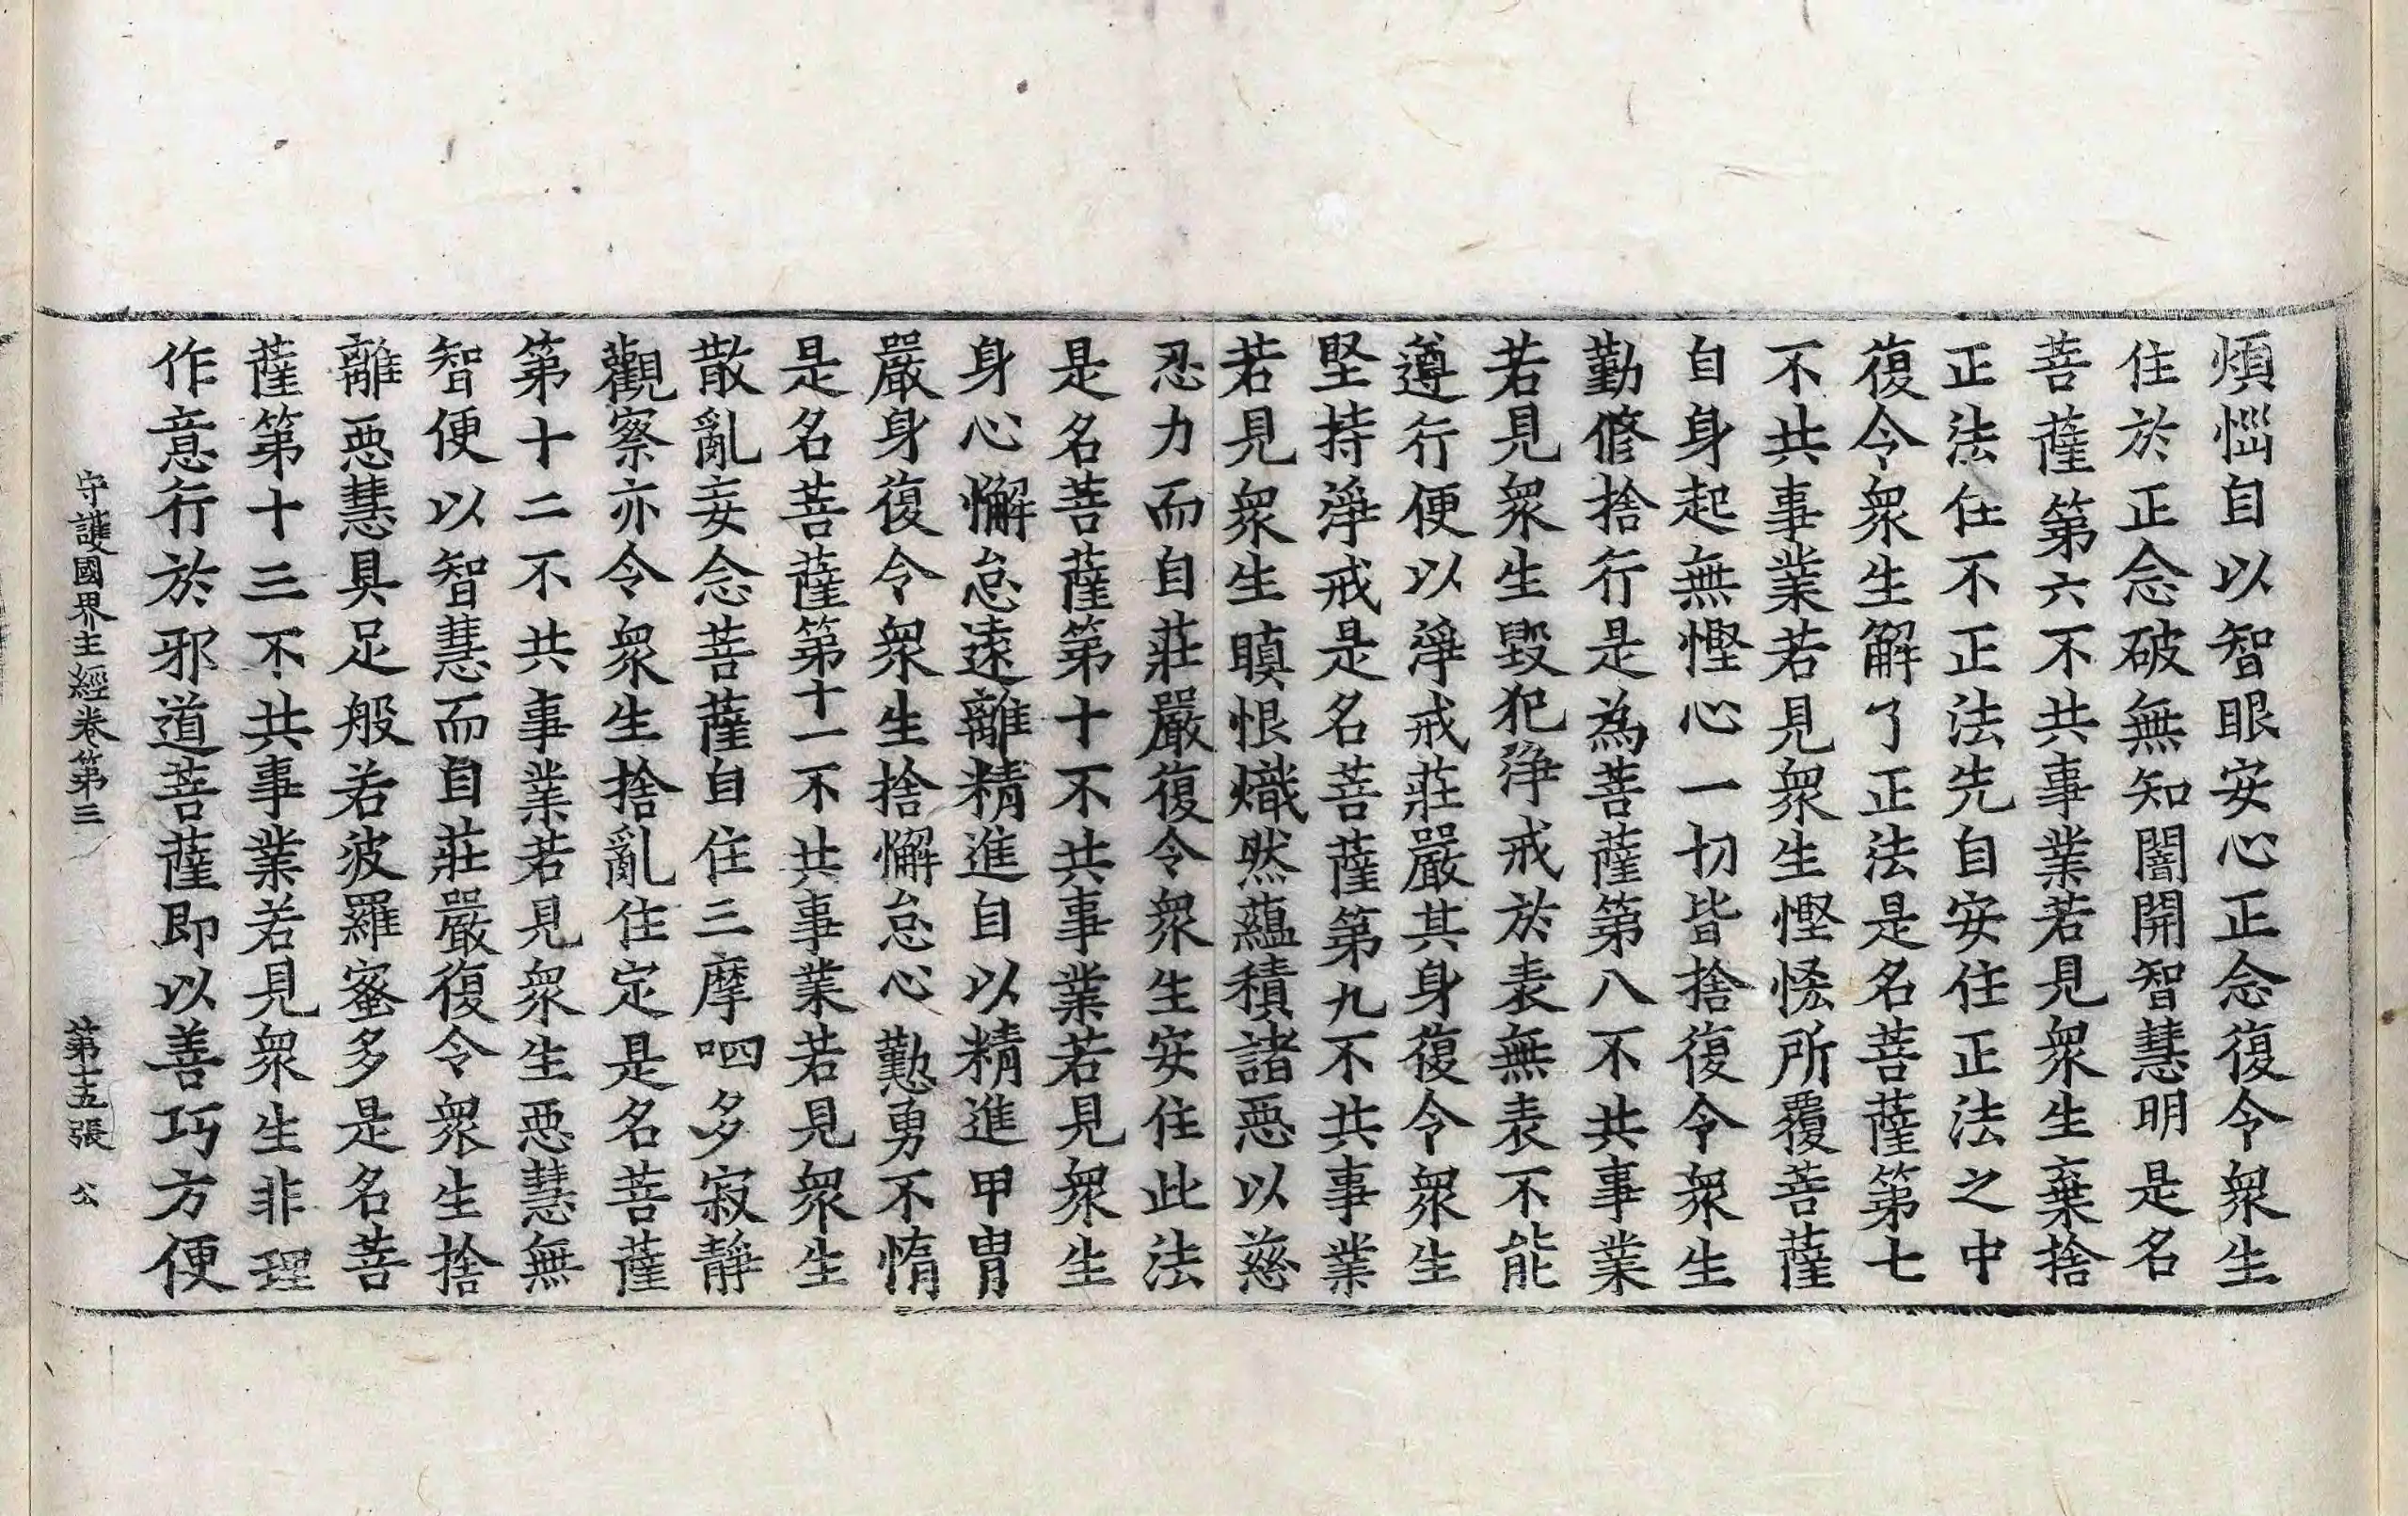 煩惱自以智眼安心正念復令衆生
住於正念破無知闇開智慧明是名
菩薩第六不共事業若見衆生棄捨
正法住不正法先自安住正法之中
復令衆生解了正法是名菩薩第七
不共事業若見衆生慳悋所覆菩薩
自身起無慳心一切皆捨復令衆生
勤修捨行是為菩薩第八不共事業
若見衆生毀犯淨戒於表無表不能
遵行便以淨戒莊嚴其身復令衆生
堅持淨戒是名菩薩第九不共事業
若見衆生瞋恨熾然蘊積諸惡以慈
忍力而自莊嚴復令衆生安住此法
是名菩薩第十不共事業若見衆生
身心懈怠遠離精進自以精進甲冑
嚴身復令衆生捨懈怠心懃勇不惰
是名菩薩第十一不共事業若見衆生
散亂妄念菩薩自住三摩呬多寂靜
觀察亦令衆生捨亂住定是名菩薩
第十二不共事業若見衆生惡慧無
智便以智慧而自莊嚴復令衆生捨
離惡慧具足般若波羅蜜多是名菩
薩第十三不共事業若見衆生非理
作意行於邪道菩薩即以善巧方便
守護國界主經卷第三 第十五張 公